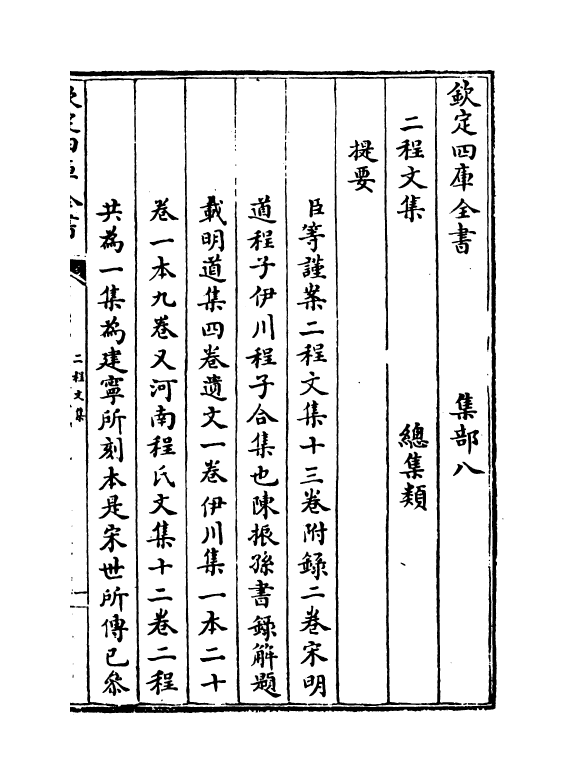 欽定四庫全書　集部八
二程文集　總集類
提要
臣等謹案二程文集十三卷附錄二卷宋明
道程子伊川程子合集也陳振孫書錄解題
載明道集四卷遺文一卷伊川集一本二十
卷一本九卷又河南程氏文集十二卷二程
共為一集為建寧所刻本是宋世所傳已叅
欽定四庫全書
二程文集
一